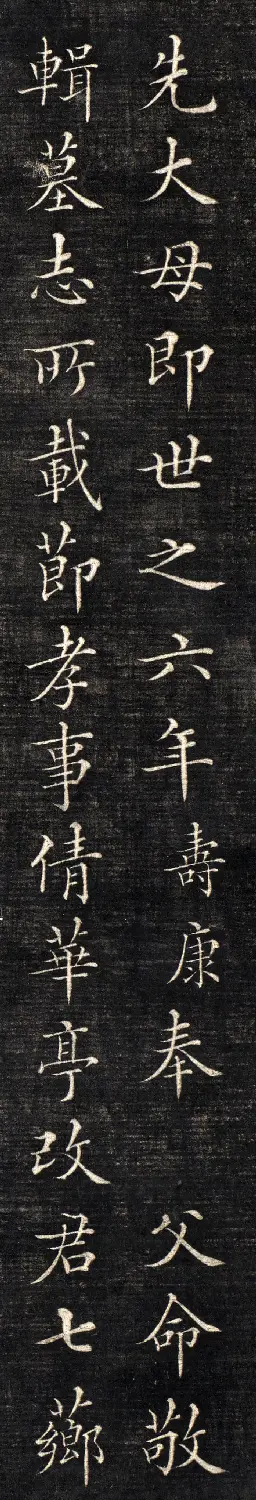 先大母即世之六年壽康奉　父命敬
輯墓志所載節孝事倩華亭改君七薌